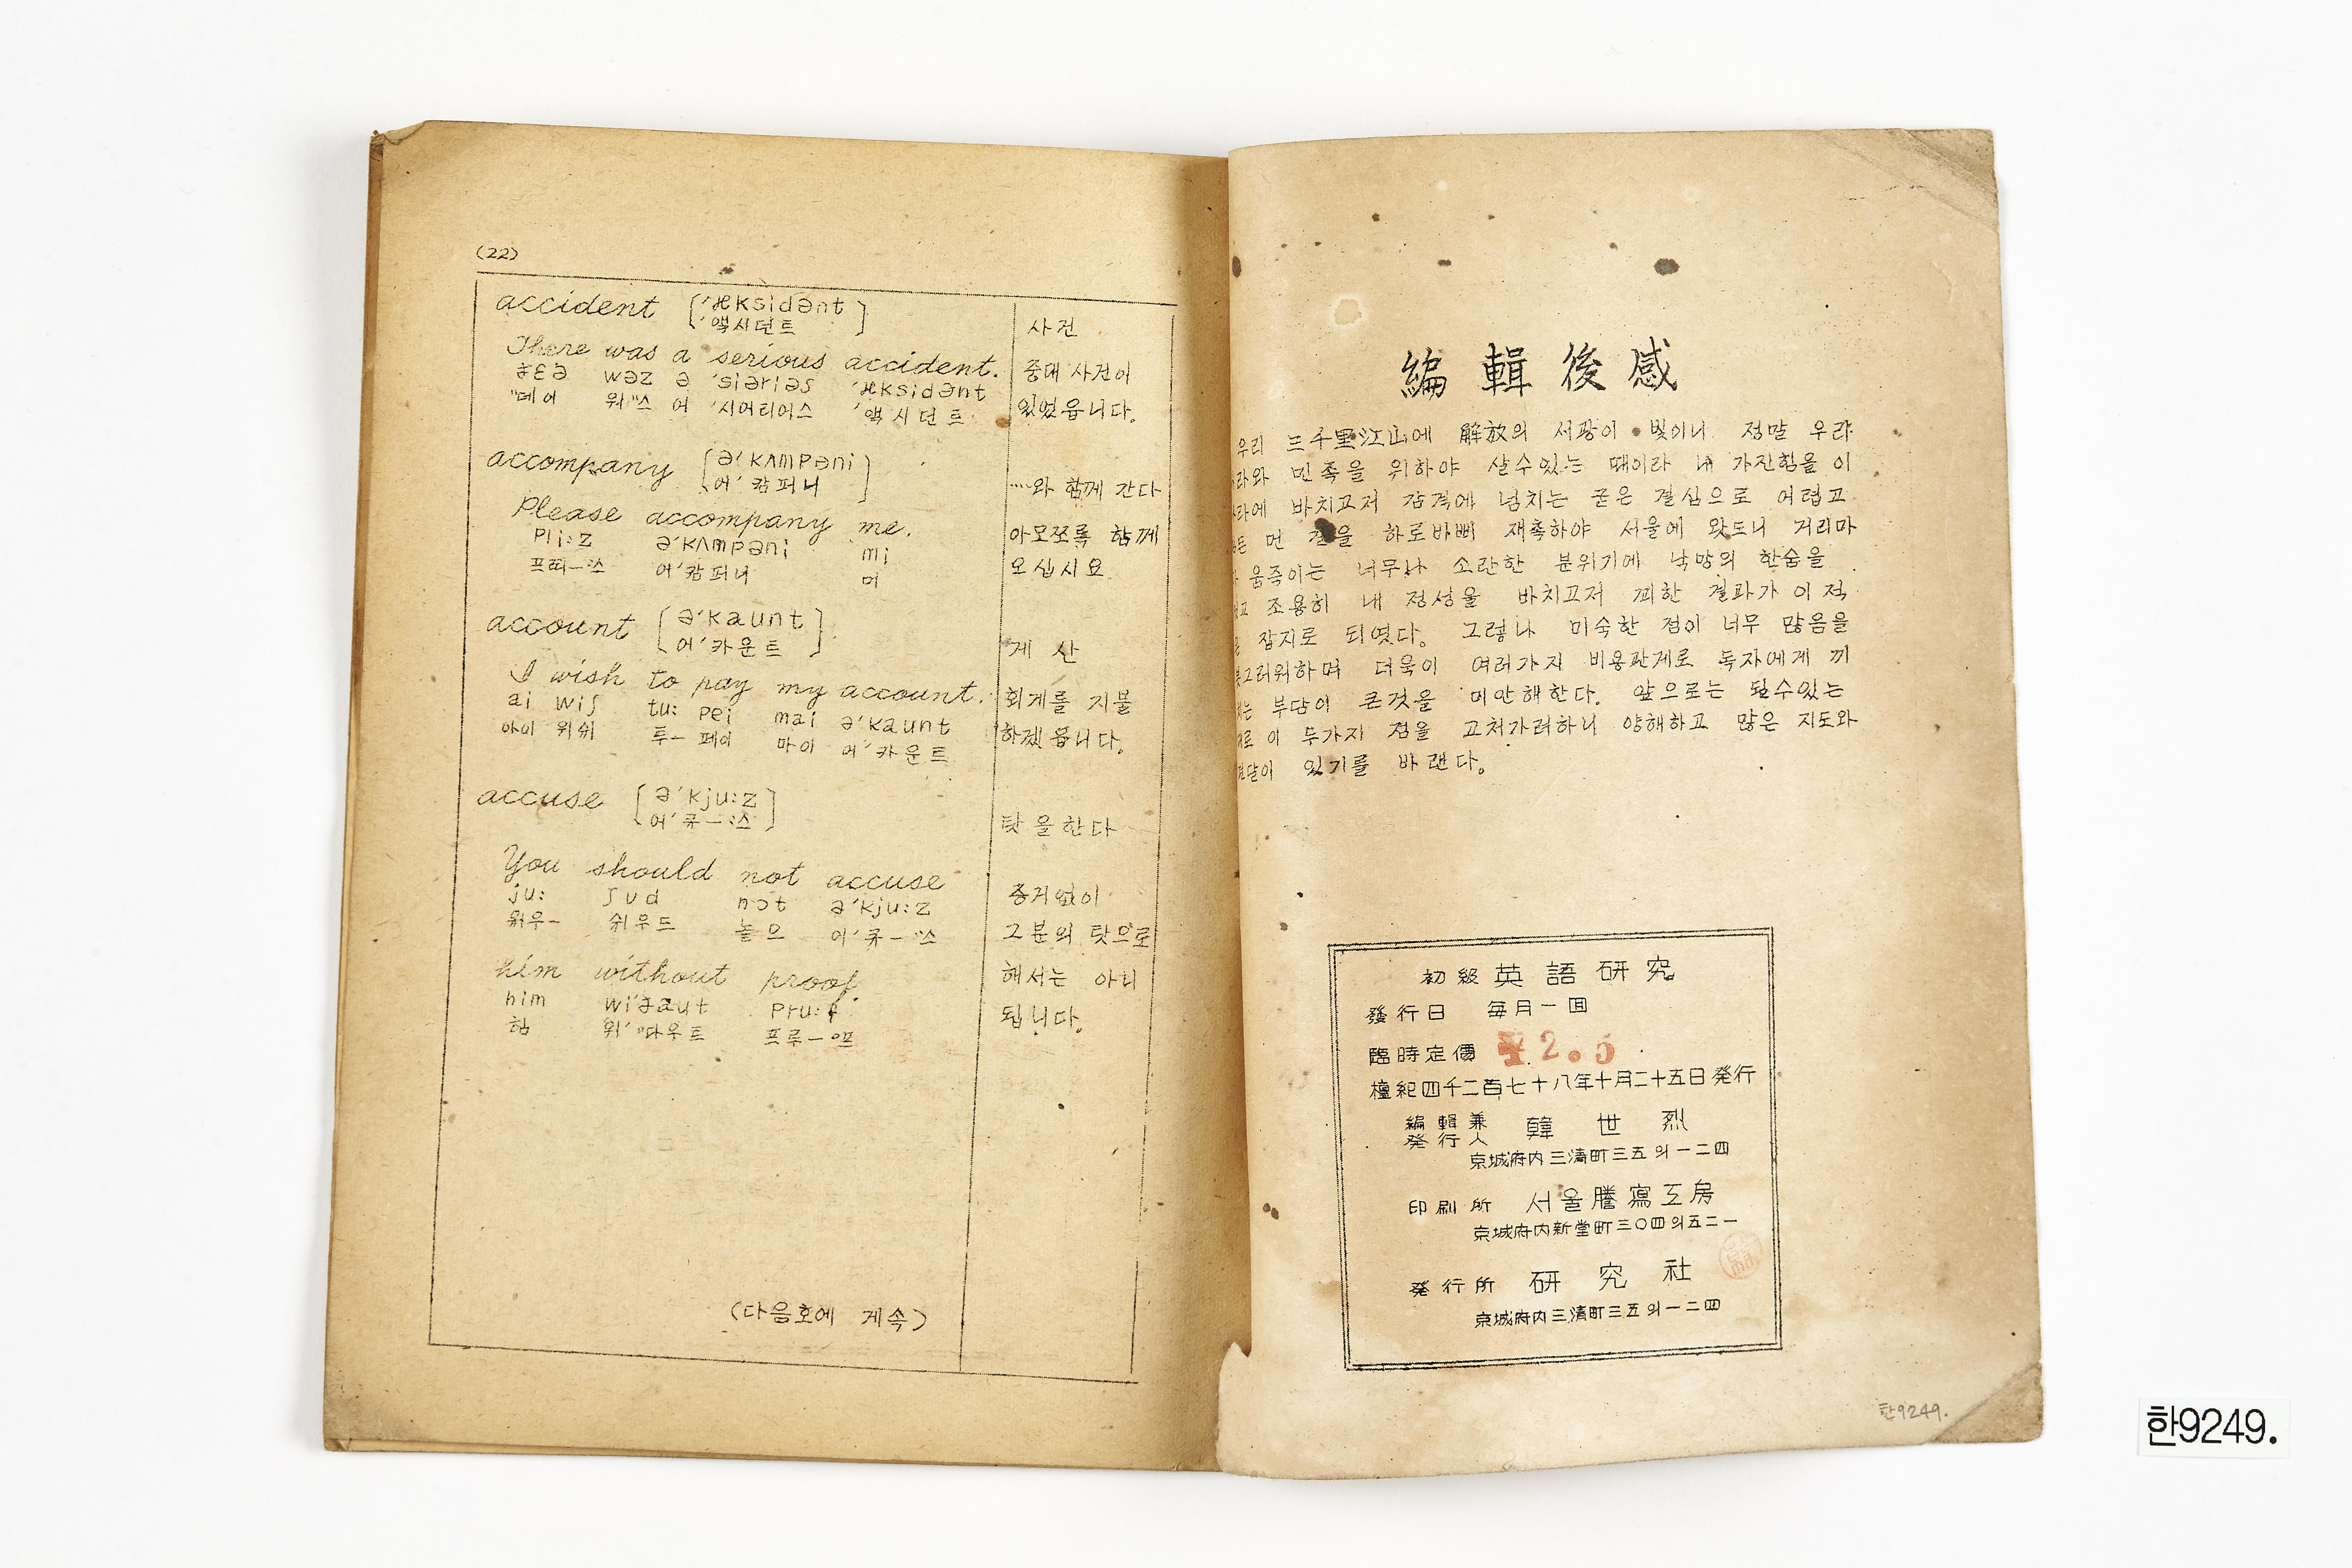 (22)
accident ['æksidənt
'액시던트]
사건
There was a serious accident.
ðɛə wəz ə 'siəriəs 'æksidənt
"데어 워"스 어 '시어리어스 '액시던트
중대 사건이
있었읍니다.
accompany [ə'kʌmpəni
어'캄퍼니]
……와 함께 간다
Please accompany me.
pli:z ə'kʌmpəni mi
어'캄퍼니 미
아모쪼록 함께
오십시요.
account [ə'kaunt
어'카운트]
게 산
I wish to pay my account.
ai wiʃ tu: pei mai ə'kaunt
아이 위쉬 투ー 페이 마이 어'카운트
회게를 지불
하겠읍니다.
accuse [ə'kju:z
어'큐ー"스]
탓을한다
You should not accuse
ju: ʃud nɔt ə'kju:z
쉬우드 어'큐ー"스
증거없이
그분의 탓으로
him without proof.
him wi'ðaut pru:f
힘 위'"다우트 프루ー
해서는 아니
됩니다.
(다음호에 게속)
編輯後感
우리 三千里江山에 解放의 서광이 빛이니 정말 우리
라와 민족을 위하야 살수있는 때이라 내 가진힘을 이
라에 바치고저 감격에 넘치는 굳은 결심으로 어렵고
든 먼 길을 하로바삐 재촉하야 서울에 왓드니 거리마
움즉이는 너무나 소란한 분위기에 낙망의 한숨을
고 조용히 내 정성을 바치고저 꾀한 결과가 이 적
잡지로 되엿다. 그렇나 미숙한 점이 너무 많음을
그러워하며 더욱이 여러가지 비용관게로 독자에게 끼
는 부담이 큰것을 미안해한다. 앞으로는 될수있는
로 이 두가지 점을 고처가려하니 양해하고 많은 지도와
달이 있기를 바랜다.
初級 英語研究
發行日 每月一回
臨時定價 ¥2.5
檀紀四千二百七十八年十月二十五日発行
編輯兼
発行人 韓世烈
京城府内三淸町三五의一二四
印刷所 서울謄寫工房
京城府内新堂町三〇四의五二一
発行所 研究社
京城府内三淸町三五의一二四
한9249.
한9249.